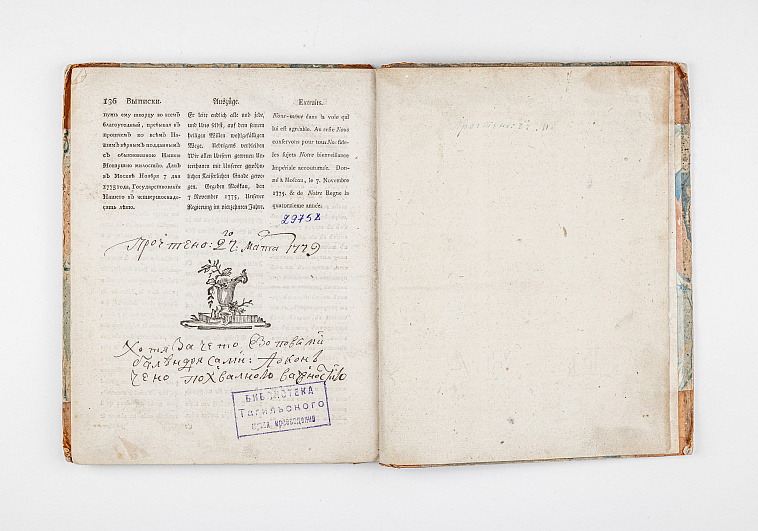 136 Выписки.
путь ему твориду во всемъ
благоугодный, пребывая въ
прочемъ ко всѣмъ На-
шимъ вѣрнымъ подданнымъ
съ обыкновенною Нашею
Монаршею милостию. Данъ
въ Москвѣ Ноября 7 дня
1775 года, Государствования
Нашего въ четвертоенад-
цать лѣто.
Auszüge.
Er leite endlich alle und jede,
und Uns selbst, auf den seinem
heiligen Willen wohlgefälligen
Wege. Uebrigens verbleiben
Wir allen Unsern getreuen Un-
terthanen mit Unserer gewöhn-
lichen Kaiserlichen Gnade gewo-
gen. Gegeben Moskau, den
7 November 1775, Unserer
Regierung im vierzehnten Jahre.
Extraits.
Nous-même dans la voie qui
lui est agréable. Au reste Nous
conservons pour tous Nos fide-
les sujets Notre bienveillance
Impériale accoutumée. Don-
né à Moscou, le 7. Novembre
1775. & de Notre Regne la
quatorzieme année.
29752
Прочтено: 27: го Марта 1779
Хотя За чето
чено похвалною
БИБЛИОТЕКА
Тагильского
музея краеведения